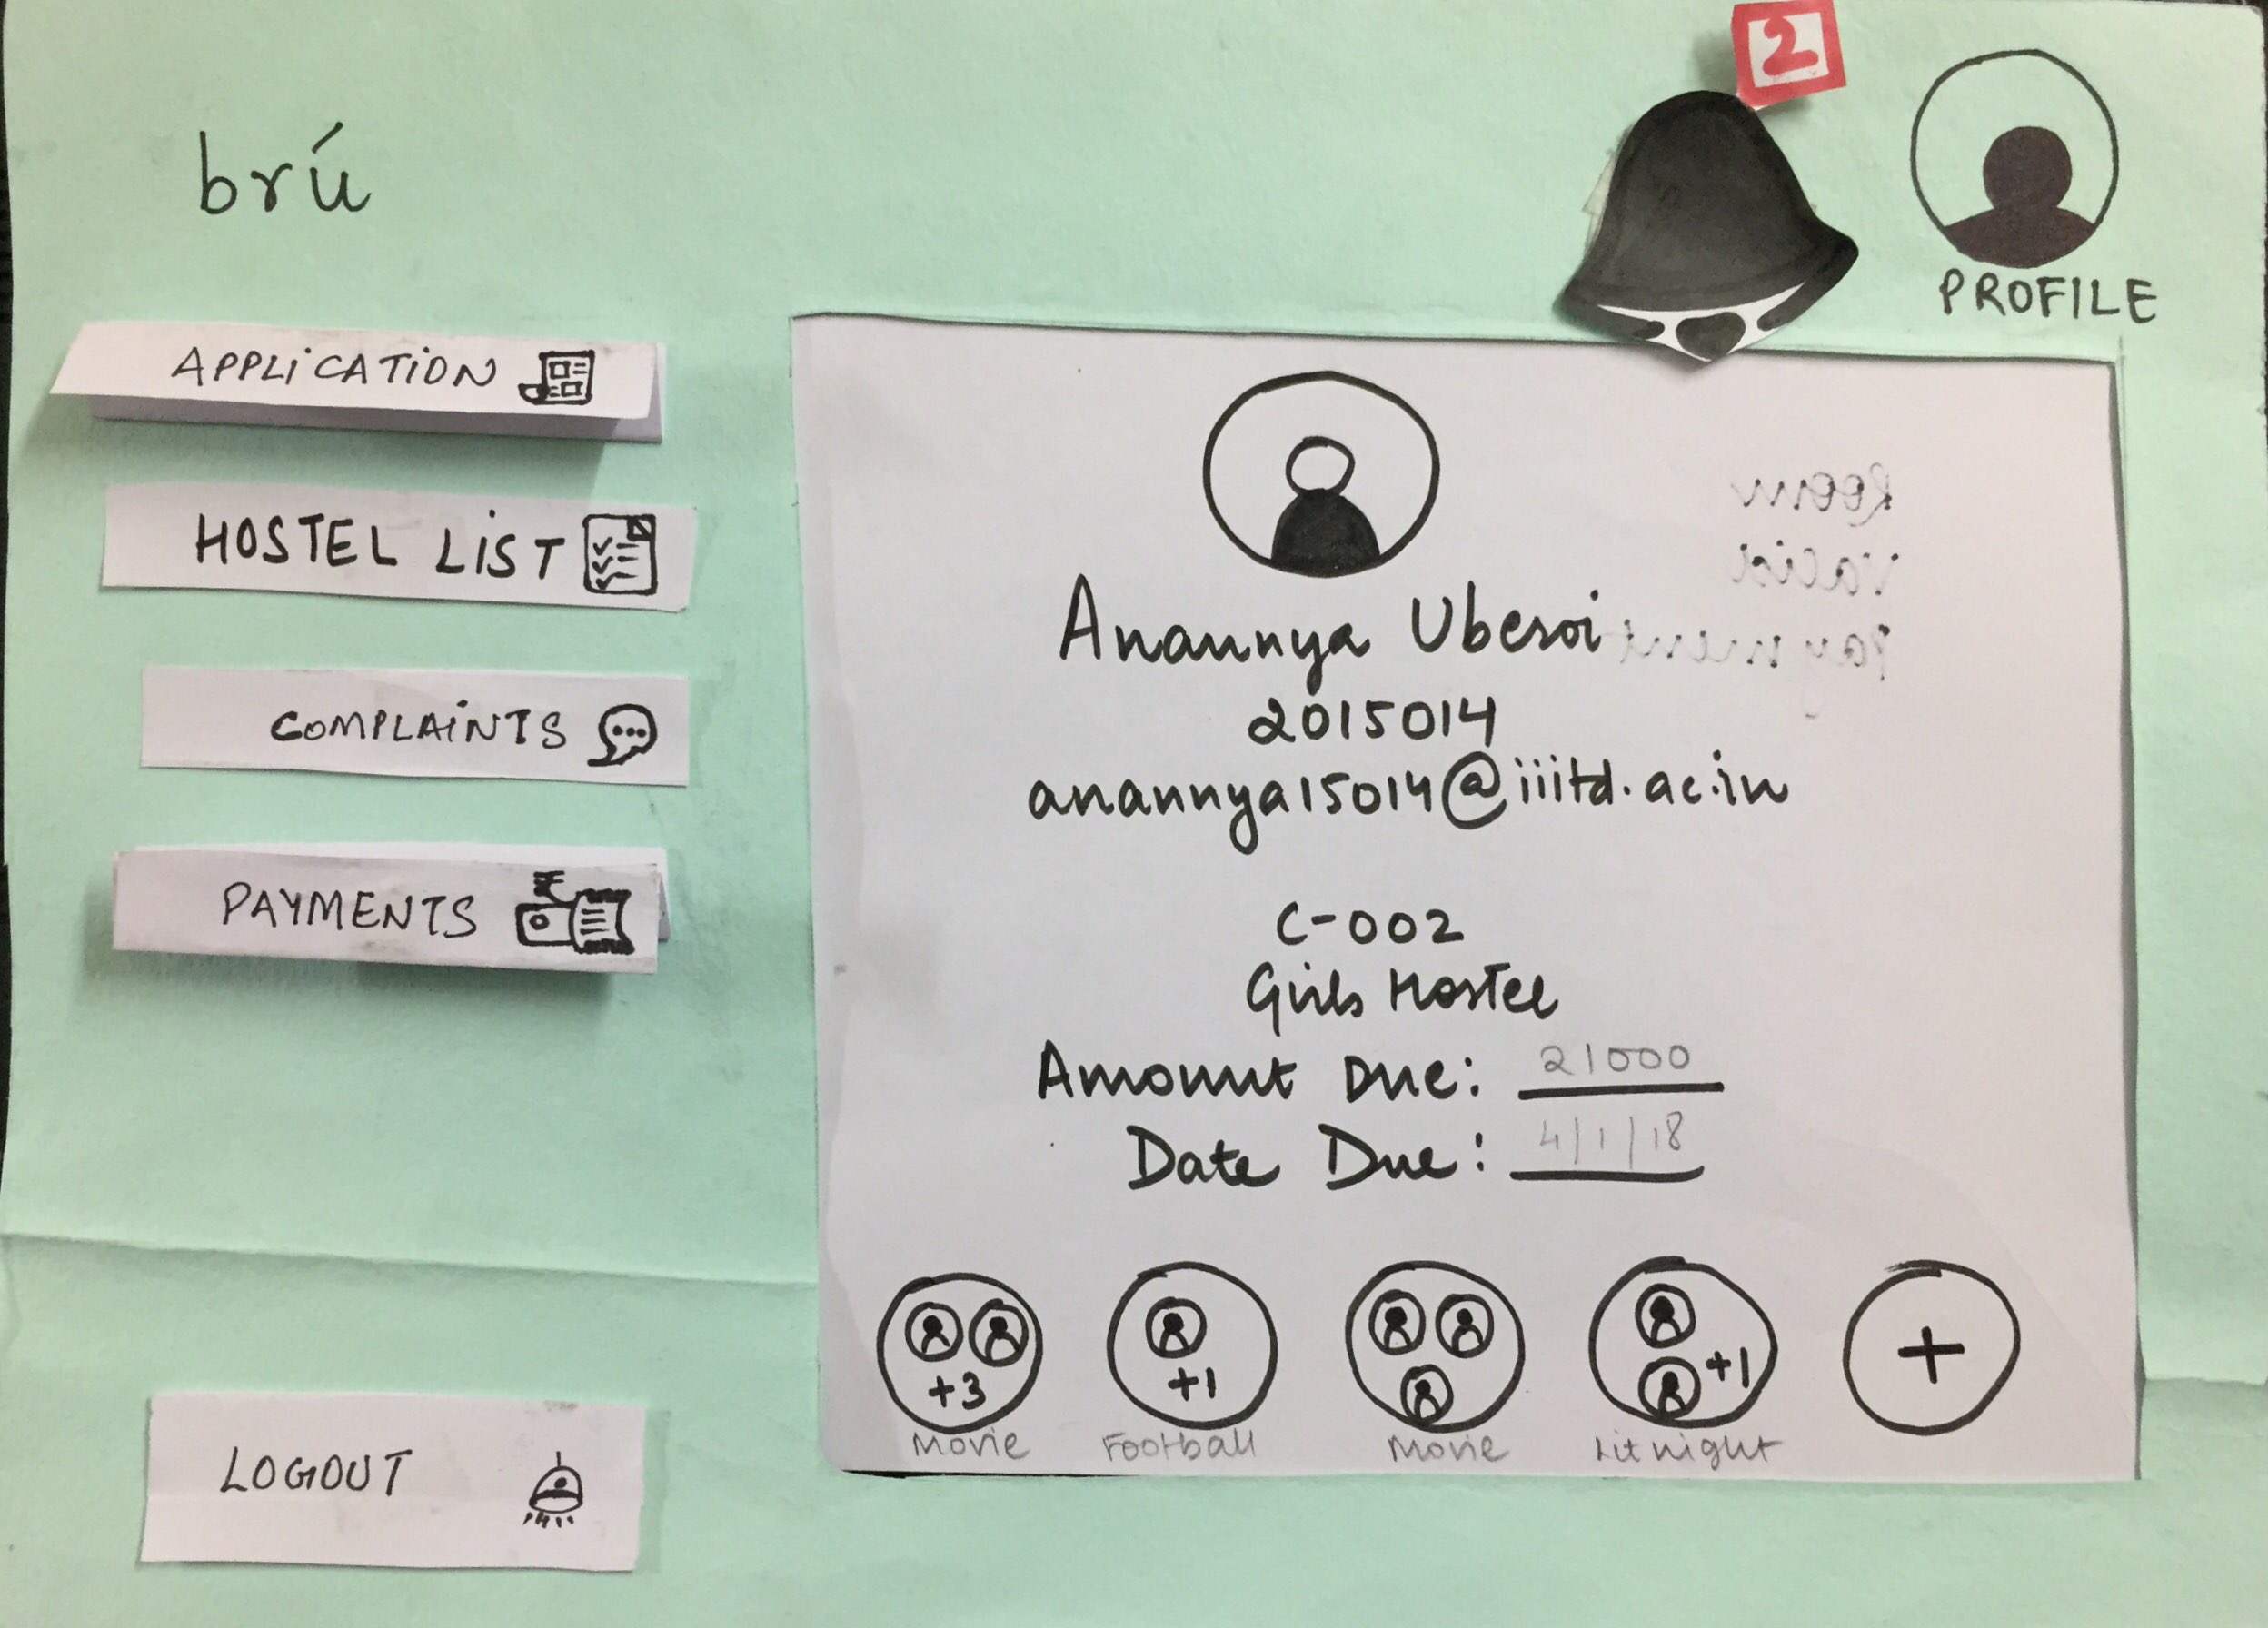 brú
2
PROFILE
APPLICATION
HOSTEL LIST
COMPLAINTS
PAYMENTS
LOGOUT
Room
Valid
Payment
Anannya Uberoi
2015014
anannya15014@iiitd.ac.in
C-002
Girls Hostel
Amount Due: 21000
Date Due: 4/1/18
+3
+1
+1
+
Movie
Football
Movie
Lit night